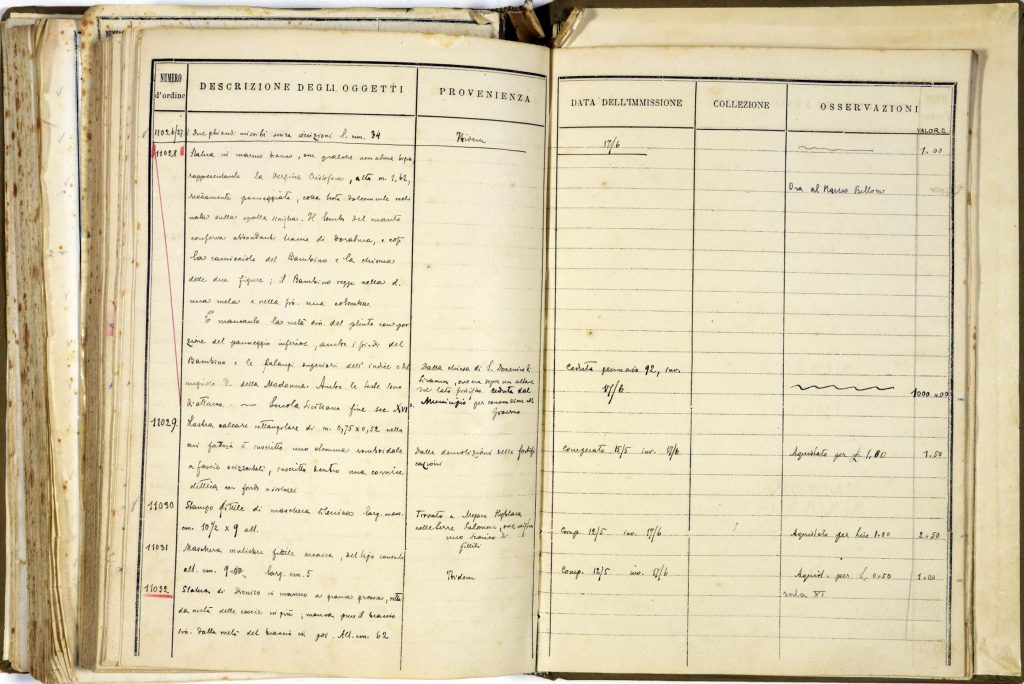 NUMERO d'ordine
DESCRIZIONE DEGLI OGGETTI
PROVENIENZA
DATA DELL'IMMISSIONE
COLLEZIONE
OSSERVAZIONI
VALORE
11026/27 Due ghiande missili senza iscrizioni l. mm. 34
Ibidem
17/6
1.00
11028 Statua in marmo bianco, con qualche venatura bigia
rappresentante la Vergine Cristofora, alta m. 1,62,
riccamente panneggiata, colla testa dolcemente recli
nata sulla spalla sinistra. Il lembo del manto
conserva abbondanti traccie di doratura, e così
la camicciola del Bambino e la chioma
delle due figure; il Bambino regge nella d.
una mela e nella sin. una colomba.
È mancante la metà sin. del plinto con por
zione del panneggio inferiore, ambo i piedi del
Bambino e le falangi superiori dell'indice e del
mignolo d. della Madonna. Ambo le teste sono
distaccate. — Scuola Siciliana fine sec. XVI°.
Dalla chiesa di S. Domenico di
Siracusa, ove era sopra un altare
del lato Ceduta dal
Municipio per convenzione col
Governo
Ceduta gennaio 92, inv.
17/6
Ora al Museo Bellomo
1000.00
11029 Lastra calcare rettangolare di m. 0,75 x 0,52 nella
cui faccia è inscritto uno stemma romboidale
a fascie orizzontali, inscritto dentro una cornice
con fondo
Dalle demolizioni delle fortifi
cazioni
Comperata 15/5 inv. 17/6
Aquistato per £ 1.00
1.50
11030 Stampo fittile di maschera silenica larg. mass.
cm. 10½ x 9 alt.
Trovato a Megara Hyblaea
nelle terre Salonia, ove
unco scarico di
fittili
Comp. 12/5 inv. 17/6
Aquistato per lire 1.00
2.50
11031 Maschera muliebre fittile arcaica, del tipo comune
alt. cm. 9 larg. cm. 5
Ibidem
Comp. 12/5 inv. 17/6
Aquist. per £. 0.50
1.00
11032 Statua di Dioniso in marmo a grana grossa, rotta
da metà delle coscie in giù; manca pure il braccio
sin. dalla metà del braccio in poi. Alt. cm. 62
sala XI